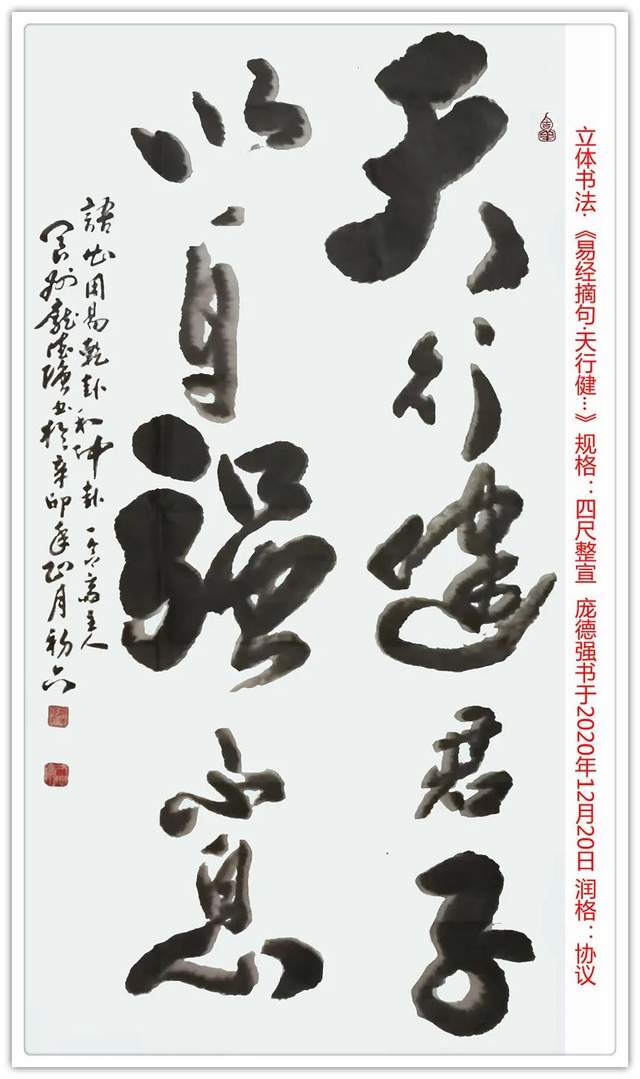 立体书法·《易经摘句·天行健…》 规格：四尺整宣 庞德强书于2020年12月20日 润格：协议
天行健君子
以自强不息
語出周易乾卦和坤卦 齋主人
龐德强书於辛卯年正月初六